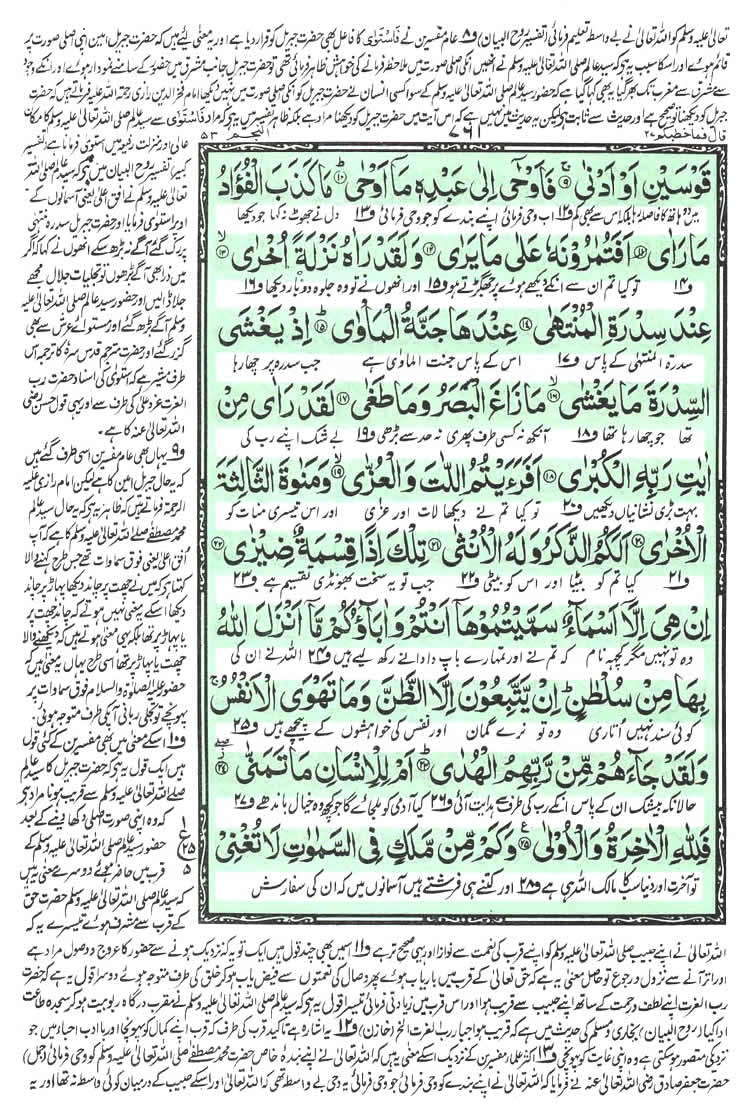 تعالیٰ علیہ وسلم کو اللہ تعالیٰ نے بے واسطہ تعلیم فرمائی (تفسیر روح البیان) و۸ عام مفسرین نے فَاسْتَوٰی کا فاعل بھی حضرت جبریل کو قرار دیا ہے اور یہ معنیٰ لئے ہیں کہ حضرت جبریل امین اپنی اصلی صورت پر
قائم ہوئے اور اسکا سبب یہ ہے کہ سید عالم صلی اللہ تعالیٰ علیہ وسلم نے انھیں انکی اصلی صورت میں ملاحظہ فرمانے کی خواہش ظاہر فرمائی تھی تو حضرت جبریل جانب مشرق میں حضور کے سامنے نمودار ہوئے اور انکے وجود
سے مشرق سے مغرب تک بھر گیا یہ بھی کہا گیا ہے کہ حضور سید عالم صلی اللہ تعالیٰ علیہ وسلم کے سوا کسی انسان نے حضرت جبریل کو انکی اصلی صورت میں نہیں دیکھا امام فخر الدین رازی رحمۃ اللہ علیہ فرماتے ہیں کہ حضرت
جبریل کو دیکھنا تو صحیح ہے اور حدیث سے ثابت ہے لیکن یہ حدیث میں نہیں ہے کہ اس آیت میں حضرت جبریل کو دیکھنا مراد ہے بلکہ ظاہر تفسیر میں یہ ہے کہ مراد فَاسْتَوٰی سے سید عالم صلی اللہ تعالیٰ علیہ وسلم کا مکان
قال فما خطبکم ۲۷ ۷۶۱ النجم ۵۳
قَوْسَیْنِ اَوْ اَدْنٰی ۹ فَاَوْحٰۤی اِلٰی عَبْدِهٖ مَاۤ اَوْحٰی ۱۰ مَا كَذَبَ الْفُؤَادُ
میں دو ہاتھ کا فاصلہ رہا بلکہ اس سے بھی کم و۱۲ اب وحی فرمائی اپنے بندے کو جو وحی فرمائی و۱۳ دل نے جھوٹ نہ کہا جو دیکھا
مَا رَاٰی ۱۱ اَفَتُمٰرُوْنَهٗ عَلٰی مَا یَرٰی ۱۲ وَ لَقَدْ رَاٰهُ نَزْلَةً اُخْرٰی ۱۳
و۱۴ تو کیا تم ان سے انکے دیکھے ہوئے پر جھگڑتے ہو و۱۵ اور انھوں نے تو وہ جلوہ دو بار دیکھا و۱۶
عِنْدَ سِدْرَةِ الْمُنْتَهٰی ۱۴ عِنْدَهَا جَنَّةُ الْمَاْوٰی ۱۵ اِذْ یَغْشَی
سدرۃ المنتہیٰ کے پاس و۱۷ اس کے پاس جنت الماویٰ ہے جب سدرہ پر چھا رہا
السِّدْرَةَ مَا یَغْشٰی ۱۶ مَا زَاغَ الْبَصَرُ وَ مَا طَغٰی ۱۷ لَقَدْ رَاٰی مِنْ
تھا جو چھا رہا تھا و۱۸ آنکھ نہ کسی طرف پھری نہ حد سے بڑھی و۱۹ بے شک اپنے رب کی
اٰیٰتِ رَبِّهِ الْكُبْرٰی ۱۸ اَفَرَءَیْتُمُ اللّٰتَ وَ الْعُزّٰی ۱۹ وَ مَنٰوةَ الثَّالِثَةَ
بہت بڑی نشانیاں دیکھیں و۲۰ تو کیا تم نے دیکھا لات اور عزیٰ اور اس تیسری منات کو
الْاُخْرٰی ۲۰ اَلَكُمُ الذَّكَرُ وَ لَهُ الْاُنْثٰی ۲۱ تِلْكَ اِذًا قِسْمَةٌ ضِیْزٰی ۲۲
و۲۱ کیا تم کو بیٹا اور اس کو بیٹی و۲۲ جب تو یہ سخت بھونڈی تقسیم ہے و۲۳
اِنْ هِیَ اِلَّاۤ اَسْمَآءٌ سَمَّیْتُمُوْهَاۤ اَنْتُمْ وَ اٰبَآؤُكُمْ مَّاۤ اَنْزَلَ اللّٰهُ
وہ تو نہیں مگر کچھ نام کہ تم نے اور تمہارے باپ دادا نے رکھ لیے ہیں و۲۴ اللہ نے ان کی
بِهَا مِنْ سُلْطٰنٍ اِنْ یَّتَّبِعُوْنَ اِلَّا الظَّنَّ وَ مَا تَهْوَی الْاَنْفُسُ
کوئی سند نہیں اتاری وہ تو نرے گمان اور نفس کی خواہشوں کے پیچھے ہیں و۲۵
وَ لَقَدْ جَآءَهُمْ مِّنْ رَّبِّهِمُ الْهُدٰی ۲۳ اَمْ لِلْاِنْسَانِ مَا تَمَنّٰی ۲۴
حالانکہ بیشک ان کے پاس انکے رب کی طرف سے ہدایت آئی و۲۶ کیا آدمی کو مل جائے گا جو کچھ وہ خیال باندھے و۲۷
فَلِلّٰهِ الْاٰخِرَةُ وَ الْاُوْلٰی ۲۵ وَ كَمْ مِّنْ مَّلَكٍ فِی السَّمٰوٰتِ لَا تُغْنِیْ
تو آخرت اور دنیا سب کا مالک اللہ ہی ہے و۲۸ اور کتنے ہی فرشتے ہیں آسمانوں میں کہ ان کی سفارش
۱
ع
۲۵
۵
عالی اور منزلت رفیعہ میں استویٰ فرمانا ہے (تفسیر
کبیر) تفسیر روح البیان میں ہے کہ سید عالم صلی اللہ
تعالیٰ علیہ وسلم نے افق اعلیٰ یعنی آسمانوں کے
اوپر استویٰ فرمایا اور حضرت جبریل سدرہ منتہیٰ
پر رک گئے آگے نہ بڑھ سکے انھوں نے کہا کہ اگر
میں ذرا بھی آگے بڑھوں تو تجلیات جلال مجھے
جلا ڈالیں اور حضور سید عالم صلی اللہ تعالیٰ علیہ
وسلم آگے بڑھ گئے اور مستوائے عرش سے بھی
گزر گئے اور حضرت مترجم قدس سرہ کا ترجمہ اس
طرف مشیر ہے کہ استویٰ کی اسناد حضرت رب
العزت عز و علا کی طرف ہے اور یہی قول حسن رضی
اللہ تعالیٰ عنہ کا ہے۔
و۹ یہاں بھی عام مفسرین اسی طرف گئے ہیں
کہ یہ حال جبریل امین کا ہے لیکن امام رازی علیہ
الرحمۃ فرماتے ہیں کہ ظاہر یہ ہے کہ یہ حال سید عالم
محمد مصطفےٰ صلی اللہ تعالیٰ علیہ وسلم کا ہے کہ آپ
افق اعلیٰ یعنی فوق سماوات تھے جس طرح کہنے والا
کہتا ہے کہ میں نے چھت پر چاند دیکھا پہاڑ پر چاند
دیکھا اسکے یہ معنیٰ نہیں ہوتے کہ چاند چھت پر
یا پہاڑ پر تھا بلکہ یہی معنیٰ ہوتے ہیں کہ دیکھنے والا
چھت یا پہاڑ پر تھا اسی طرح یہاں یہ معنیٰ ہیں کہ
حضور علیہ الصلوٰۃ والسلام فوق سماوات پر
پہونچے تو تجلی ربانی آپکی طرف متوجہ ہوئی۔
و۱۰ اسکے معنیٰ میں بھی مفسرین کے کئی قول
ہیں ایک قول یہ ہے کہ حضرت جبریل کا سید عالم
صلے اللہ تعالیٰ علیہ وسلم سے قریب ہونا مراد ہے
کہ وہ اپنی صورت اصلی دکھا دینے کے بعد
حضور سید عالم صلی اللہ تعالیٰ علیہ وسلم کے
قرب میں حاضر ہوئے دوسرے معنیٰ یہ ہیں
کہ سید عالم صلی اللہ تعالیٰ علیہ وسلم حضرت حق
کے قرب سے مشرف ہوئے تیسرے یہ کہ
اللہ تعالیٰ نے اپنے حبیب صلی اللہ تعالیٰ علیہ وسلم کو اپنے قرب کی نعمت سے نوازا اور یہی صحیح تر ہے و۱۱ اسمیں بھی چند قول ہیں ایک تو یہ کہ نزدیک ہونے سے حضور کا عروج و وصول مراد ہے
اور اتر آنے سے نزول و رجوع تو حاصل معنیٰ یہ ہے کہ حق تعالیٰ کے قرب میں باریاب ہوئے پھر وصال کی نعمتوں سے فیض یاب ہو کر خلق کی طرف متوجہ ہوئے دوسرا قول یہ ہے کہ حضرت
رب العزت اپنے لطف و رحمت کے ساتھ اپنے حبیب سے قریب ہوا اور اس قرب میں زیادتی فرمائی تیسرا قول یہ ہے کہ سید عالم صلی اللہ تعالیٰ علیہ وسلم نے مقرب درگاہ ربوبیت ہو کر سجدہ طاعت
ادا کیا (روح البیان) بخاری و مسلم کی حدیث میں ہے کہ قریب ہوا جبار رب العزت الخ (خازن) و۱۲ یہ اشارہ ہے تاکید قرب کی طرف کہ قرب اپنے کمال کو پہونچا اور با ادب احباء میں جو
نزدیکی متصور ہو سکتی ہے وہ اپنی غایت کو پہونچی و۱۳ اکثر علماء مفسرین کے نزدیک اسکے معنیٰ یہ ہیں کہ اللہ تعالیٰ نے اپنے بندہ خاص حضرت محمد مصطفےٰ صلی اللہ تعالیٰ علیہ وسلم کو وحی فرمائی (جمل)
حضرت جعفر صادق رضی اللہ تعالیٰ عنہ نے فرمایا کہ اللہ تعالیٰ نے اپنے بندے کو وحی فرمائی جو وحی فرمائی یہ وحی بے واسطہ تھی کہ اللہ تعالیٰ اور اسکے حبیب کے درمیان کوئی واسطہ نہ تھا اور یہ